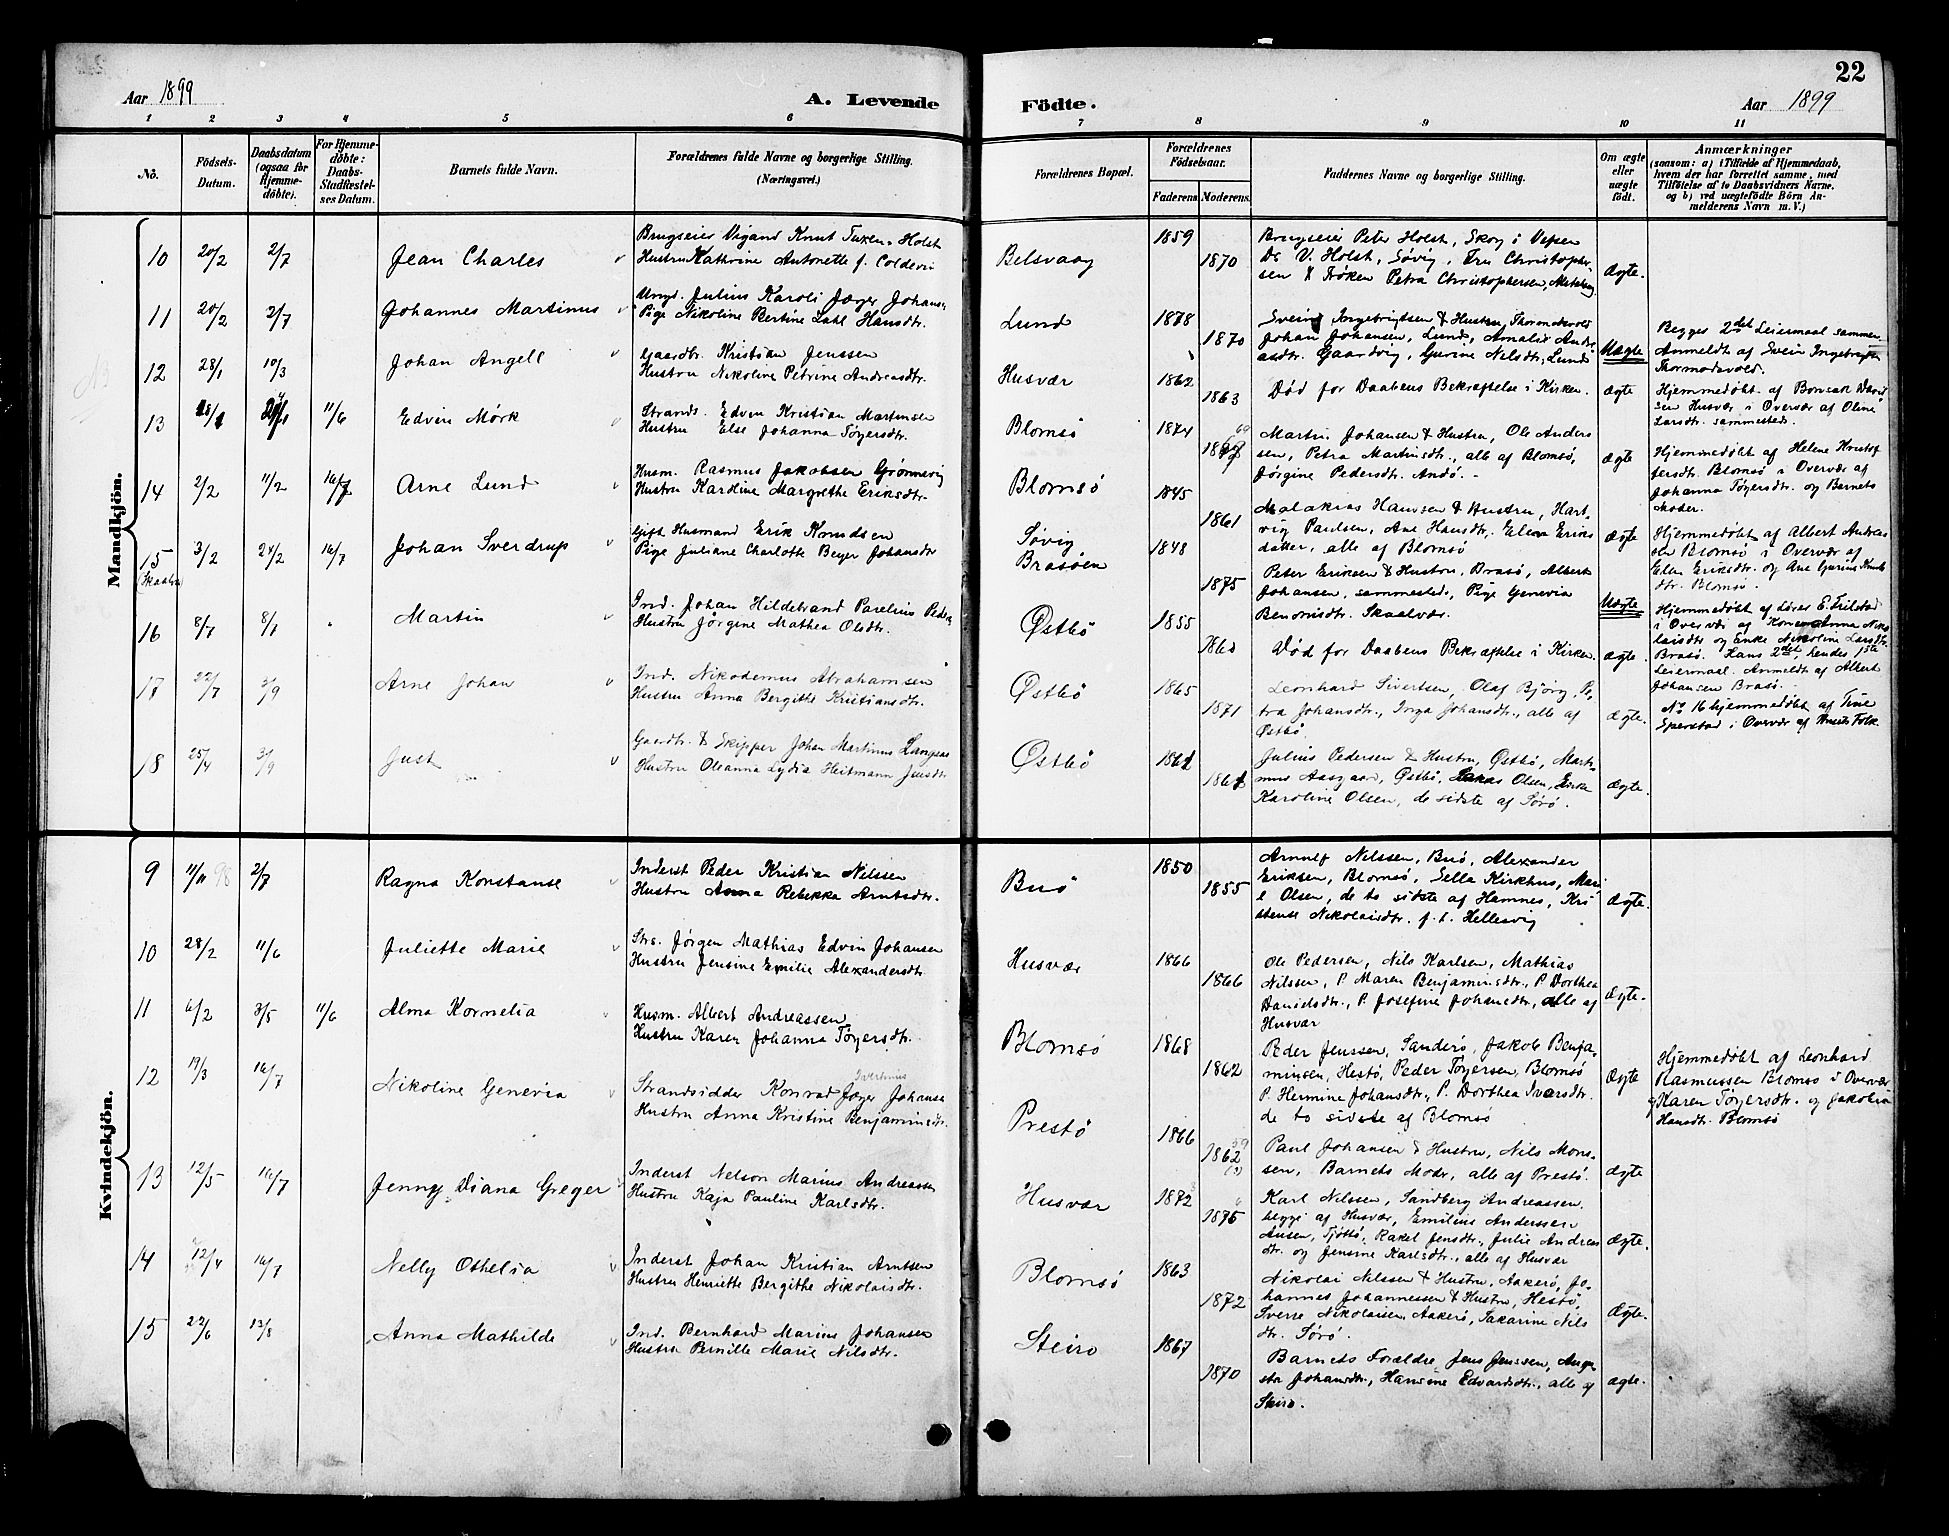 22
Aar 1899
A. Levende
Födte.
Aar 1899
1 2 3 4 5 6 7 8 9 10 11
No.
Födsels-
Datum.
Daabsdatum
(ogsaa for
Hjemme-
döbte).
For Hjemme-
döbte:
Daabs-
Stadfæstel-
ses Datum.
Barnets fulde Navn.
Forældrenes fulde Navne og borgerlige Stilling.
(Næringsvei.)
Forældrenes Bopæl.
Forældrenes
Födselsaar.
Faderens
Moderens.
Faddernes Navne og borgerlige Stilling.
Om ægte
eller
uægte
födt.
Anmærkninger
(saasom: a) i Tilfælde af Hjemmedaab,
hvem der har forrettet samme, med
Tilföielse af to Daabsvidners Navne.
og b) ved uægtefödte Börn An-
melderens Navn m. V.)
Mandkjön.
10 20/2 2/7 Jean Charles
Brugseier Vigand Knut Tuxen Holst
Hustru Kathrine Antonette f. Coldevin
Belsvaag 1859 1870
Brugseier Peter Holst, Skog i Vefsen
Dr V. Holst, Søvig, Fru Christopher-
sen & Frøken Petra Christophersen,
ægte.
11 20/2 2/7 Johannes Martinus
Ungk. Julius Karoli Jæger Johans.
Pige Nikoline Bertine Lahl Hansdtr.
Lund 1878 1870
Svein Ingebrigtsen & Hustru, Thormodsvold
Johan Johansen, Lund, Amalie Andre
asdtr. Gaardvig, Gurine Nilsdtr, Lund
Uægte
Begges 2det Leiermaal sammen
Anmeldt af Svein Ingebrigtsen
Thormodsvold.
12 28/1 10/3 Johan Angell
Gaardbr. Kristian Jenssen
Hustru Nikoline Petrine Andreasdtr.
Husvær 1862 1863
Død for Daabens Bekræftelse i Kirken.
ægte
Hjemmedøbt af Bonsak David
sen Husvær i Overvær af Oline
Larsdtr. sammesteds.
13 11/6 Edvin Mørk
Strands. Edvin Kristian Martinsen
Hustru Else Johanna Tøgersdtr.
Blomsø 1874
Martin Johansen & Hustru, Ole Anders
sen, Petra Martinsdtr, alle af Blomsø,
Jørgine Pedersdtr. Andø.
ægte
Hjemmedøbt af Helene Kristof
fersdtr. Blomsø i Overvær af
Johanna Tøgersdtr. og Barnets
Moder.
14 2/2 11/2 16/7 Arne Lund
Husm. Rasmus Jakobsen Grønnevig
Hustru Karoline Margrethe Eriksdtr.
Blomsø 1845 1861
Malakias Hanssen & Hustru, Hart-
vig Paulsen, Ane Hansdtr. Elen Eriks
datter, alle af Blomsø
ægte
Hjemmedøbt af Albert Andreas
sen Blomsø i Overvær af
Elen Eriksdtr. og Ane Gurine Knuts
dtr. Blomsø.
15 3/2 24/2 16/7 Johan Sverdrup
Gift Husmand Erik Knudsen
Pige Juliane Charlotte Beyer Johansdtr
Søvig
Brasøen
1848 1875
Peter Eriksen & Hustru, Brasø, Albert
Johansen, sammesteds, Pige Genevia
Benonisdtr. Skaalvær.
Uægte
Hjemmedøbt af Lærer E. Trilstad
i Overvær af Konen Anna Niko
laisdtr og Enke Nikoline Larsdtr.
Brasø. Hans 2det, hendes 1ste
Leiermaal. Anmeldt af Albert
Johansen Brasø.
16 8/7 8/7 Martin
Ind. Johan Hildebrand Parelius Peder
Hustru Jørgine Mathea Olsdtr.
Østbø 1855
Død for Daabens Bekræftelse i Kirken.
ægte.
No 16 hjemmedøbt af Tine
Sperstad i Overvær af Husets Folk
17 22/7 3/9 Arne Johan
Ind. Nikodemus Abrahamsen
Hustru Anna Bergithe Kristiansdtr.
Østbø 1865 1871
Leonhard Sivertsen, Olaf Bjørg, Pe-
tra Johansdtr., Inga Johansdtr., alle af
Østbø.
ægte.
18 25/4 3/9 Just
Gaardbr. & Skipper Johan Martinus
Hustru Oleanna Lydia Heitmann Jensdtr
Østbø 1861
Julius Pedersen & Hustru, Østbø, Marti-
nus Aasgaar, Østbø, Olsen, Enke
Karoline Olsen, de sidste af Sørø.
ægte.
Kvindekjön.
9 11/11 98 2/7 Ragna Konstanse
Inderst Peder Kristian Nilssen
Hustru Anna Rebekka Arntsdtr.
Buø 1850 1855
Arnulf Nilssen, Buø, Alexander
Eriksen, Blomsø, Sella Kirkhus, Mari
e Olsen, de to sidste af Hamnes, Kri
stense Nikolaisdtr. f. t. Hellesvig
ægte.
10 28/2 11/6 Juliette Marie
Strs. Jørgen Mathias Edvin Johansen
Hustru Jensine Emilie Alexandersdtr.
Husvær 1866 1866
Ole Pedersen, Nils Karlsen, Mathias
Nilssen, P. Maren Benjaminsdtr., P. Dorthea
Danielsdtr., P. Josefine Johansdtr., alle af
Husvær
ægte.
11 6/2 3/5 11/6 Alma Kornelia
Husm. Albert Andreassen
Hustru Karen Johanna Tøgersdtr.
Blomsø 1868 1862
Peder Jenssen, Sanderø, Jakob Benja-
minsen, Hestø, Peder Tøgersen, Blomsø
P. Hermine Johansdtr., P. Dorthea Iversdtr.
de to sidste af Blomsø
ægte
Hjemmedøbt af Leonhard
Rasmussen Blomsø i Overvær
af Karen Tøgersdtr. og Jakobine
Hansdtr. Blomsø
12 19/3 16/7 Nikoline Genevia
Strandsidder Konrad Jæger Johanse
Hustru Anna Kristine Benjaminsdtr.
Prestø 1866 1862
Paul Johansen & Hustru, Nils Mons-
sen, Barnets Moder, alle af Prestø.
ægte
13 12/5 16/7 Jenny Diana Greger
Inderst Nelson Marius Andreassen
Hustru Kaja Pauline Karlsdtr.
Husvær 1872 1875
Karl Nilssen, Sandberg Andreassen
begge af Husvær, Emilius Anderssen
Ausen, Tjøttø, Rakel Jensdtr., Julie Andreas
dtr. og Jensine Karlsdtr., alle af Husvær
ægte.
14 12/4 16/7 Nelly Othelia
Inderst Johan Kristian Arntsen
Hustru Henriette Bergithe Nikolaisdtr.
Blomsø 1863 1872
Nikolai Nilssen & Hustru, Aakerø, Jo-
hannes Johannessen & Hustru, Hestø,
Sverre Nikolaisen, Aakerø, Sakarine Nils
dtr. Sørø.
ægte.
15 22/6 13/8 Anna Mathilde
Ind. Bernhard Marius Johansen
Hustru Pernille Marie Nilsdtr.
Steiro 1867 1870
Barnets Forældre, Jens Jenssen, Augu-
sta Johansdtr., Hansine Edvardsdtr., alle af
Steiro.
ægte.